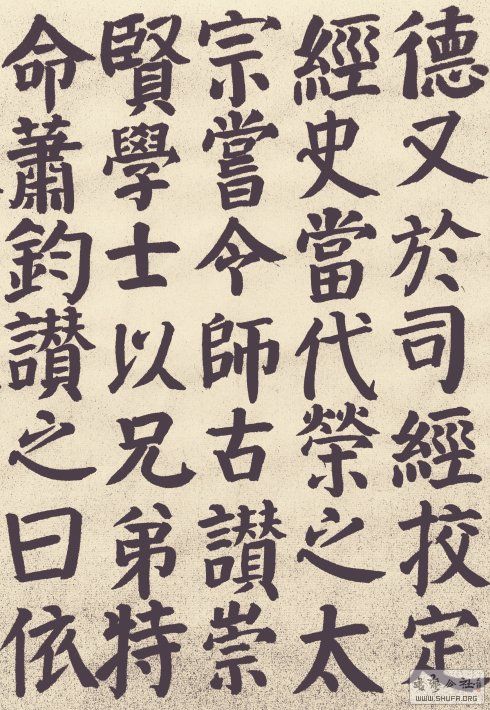 德又於司經挍定
經史當代榮之太
宗嘗令師古讃崇
賢學士以兄弟特
命蕭鈞讃之曰依
WWW.SHUFA.ORG